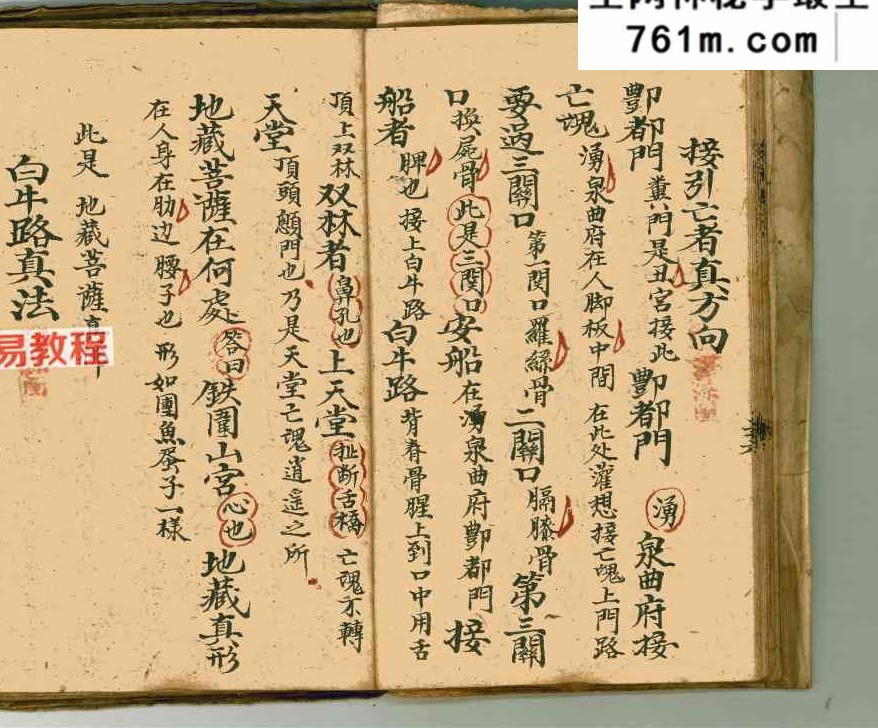 761m.com
接引亡者真方向
酆都門 糞門是丑宮接此 酆都門 湧泉曲府接
亡魂 湧泉曲府在人脚板中間 在此处灌想接亡魂上門路
要過三關口 第一関口羅絲骨 二關口 膈膝骨 第三關
口 换屍骨 此是三関口 安船 在湧泉曲府酆都門 接
船者 脾也 接上白牛路 白牛路 背脊骨腥上到口中用舌
頂上双林 双林者 鼻孔也 上天堂 扯断舌橋 亡魂不轉
天堂 頂頭顖門也 乃是天堂亡魂逍遥之所
地藏菩薩在何處 答曰 鉄圍山宮 心也 地藏真形
在人身在肋边 腰子也 形如團魚蛋子一樣
此是 地藏菩薩
白牛路真法
易教程